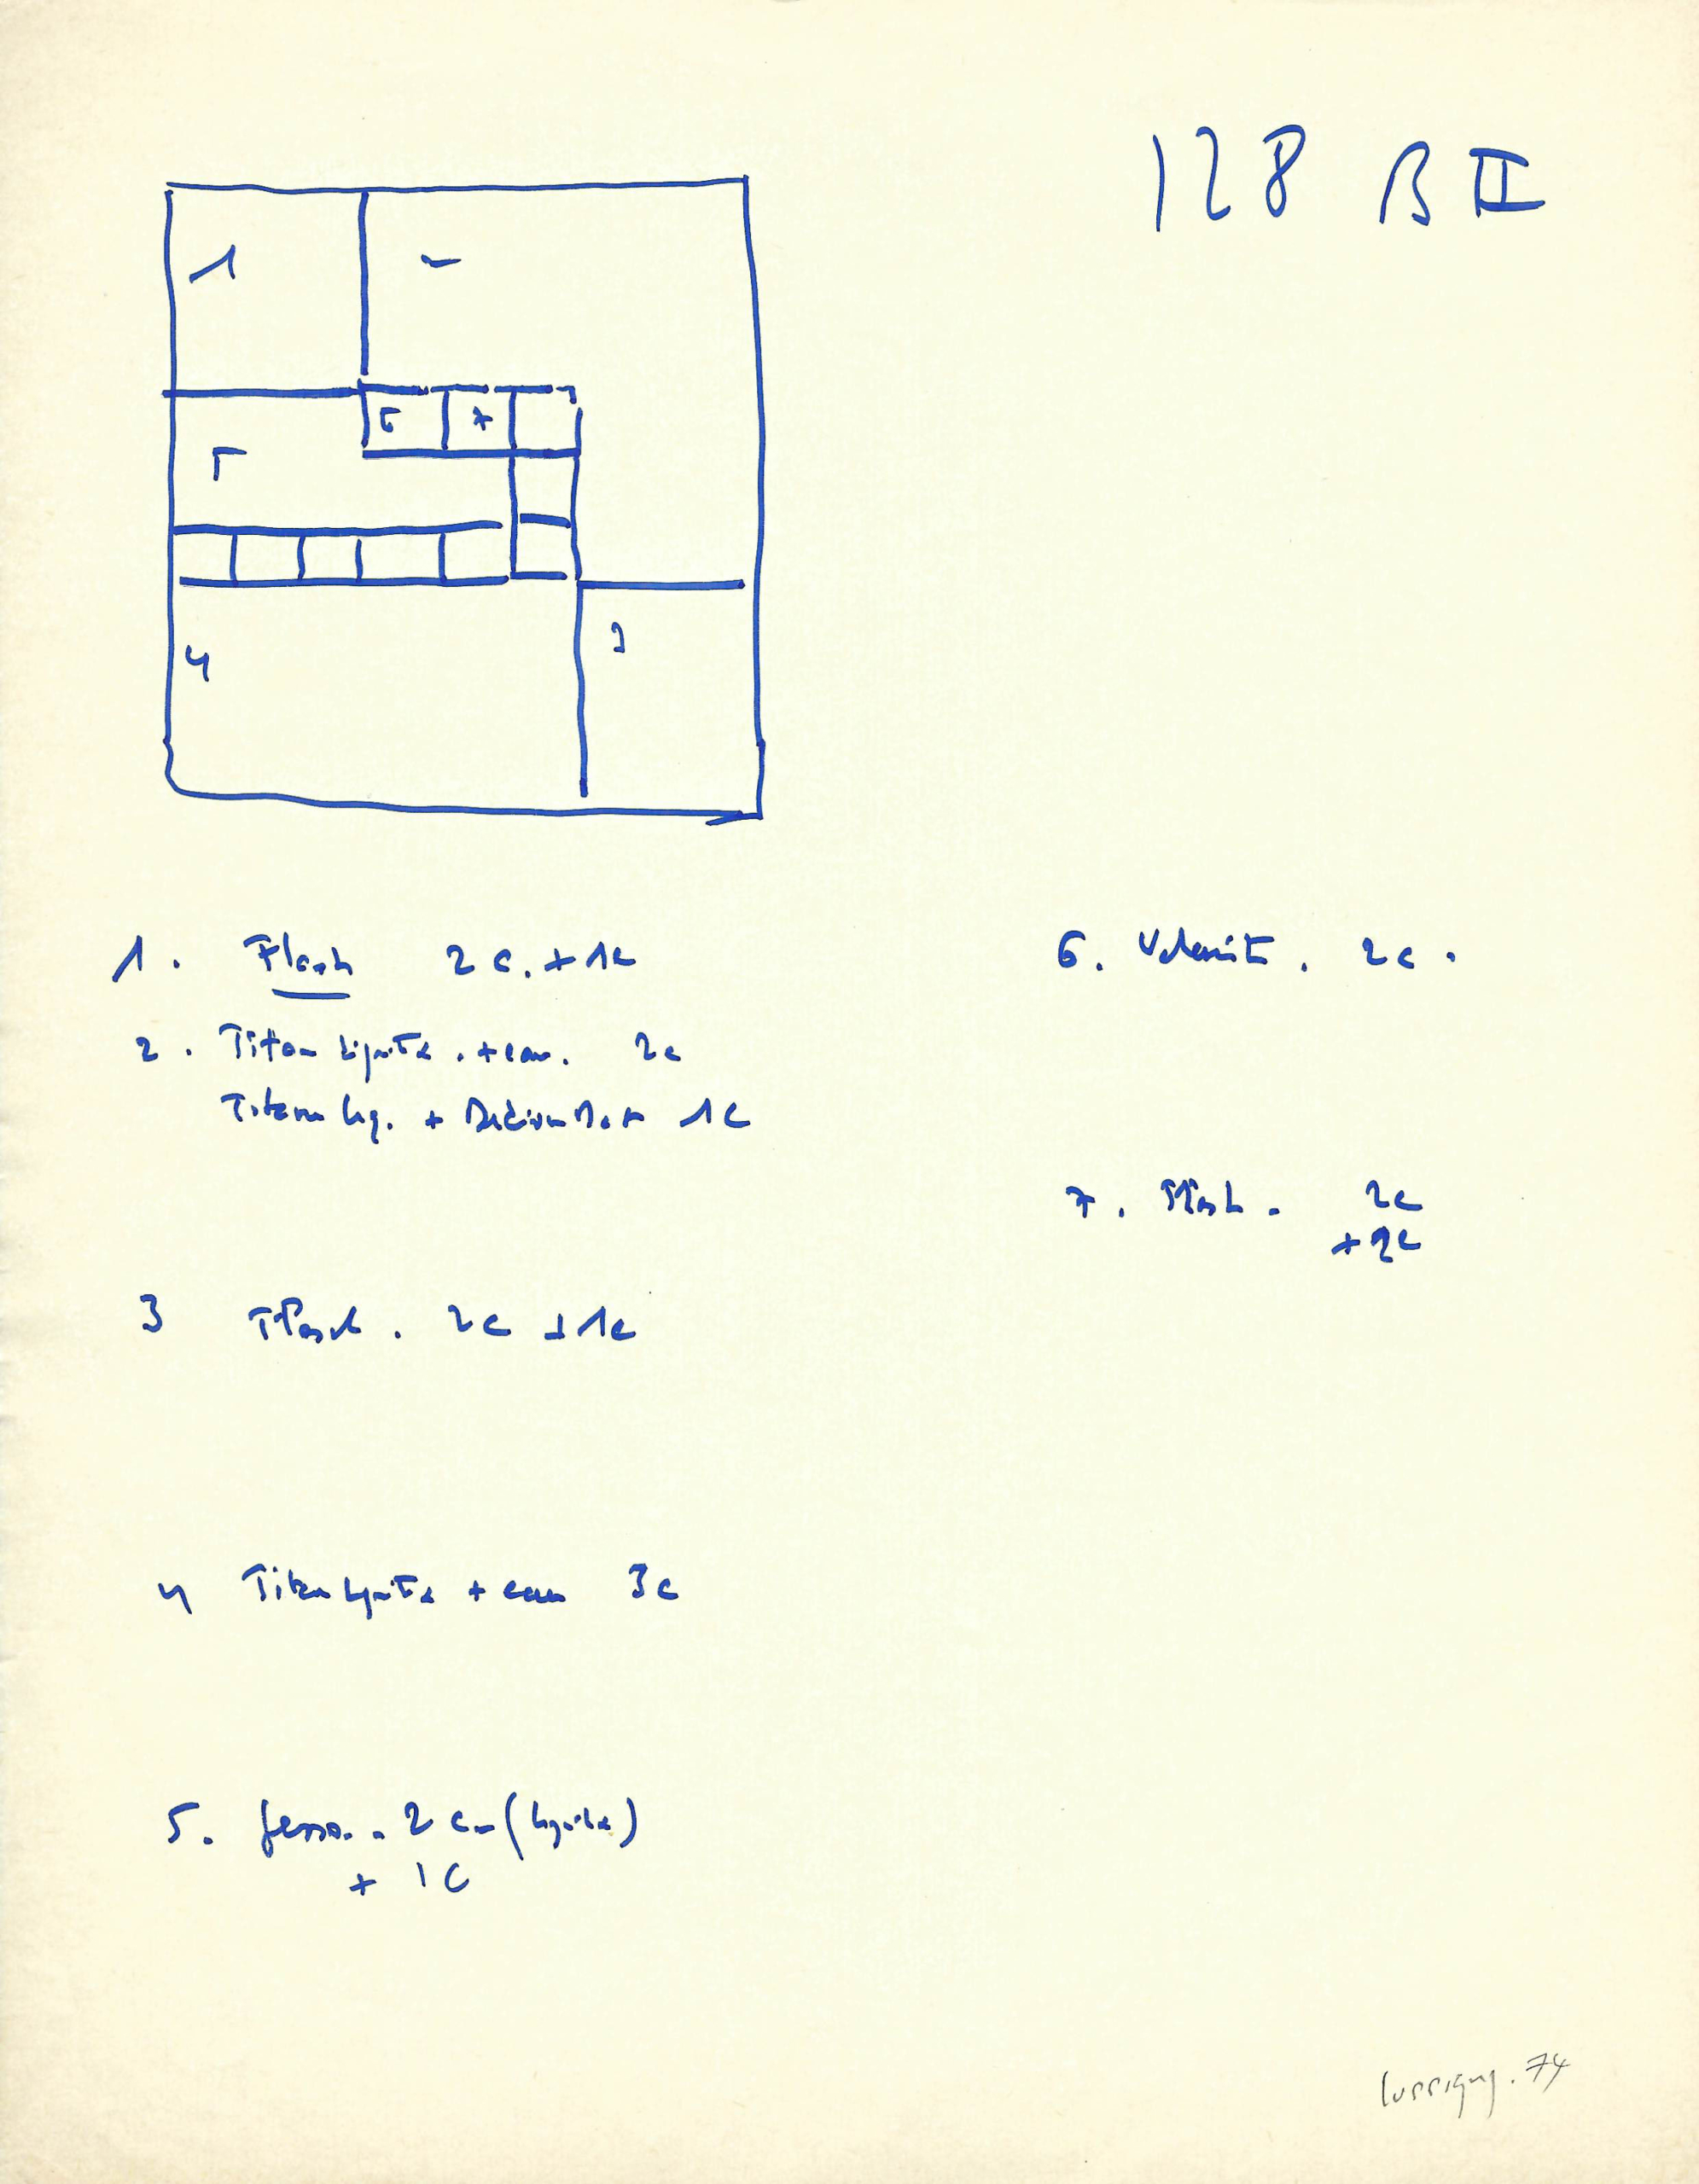 128 B II
1
5
6
7
4
3
1. Flash 2 c. + 1c
2. Titan Liquitex. + eau. 2c
Titan liq. + 1c
3 Flash. 2c + 1c
4 Titan Liquitex + eau 3c
5. gesso. 2 c - (liquitex)
+ 1C
6. 2c.
7. Flash. 2c
+ 2c
Lussigny. 74